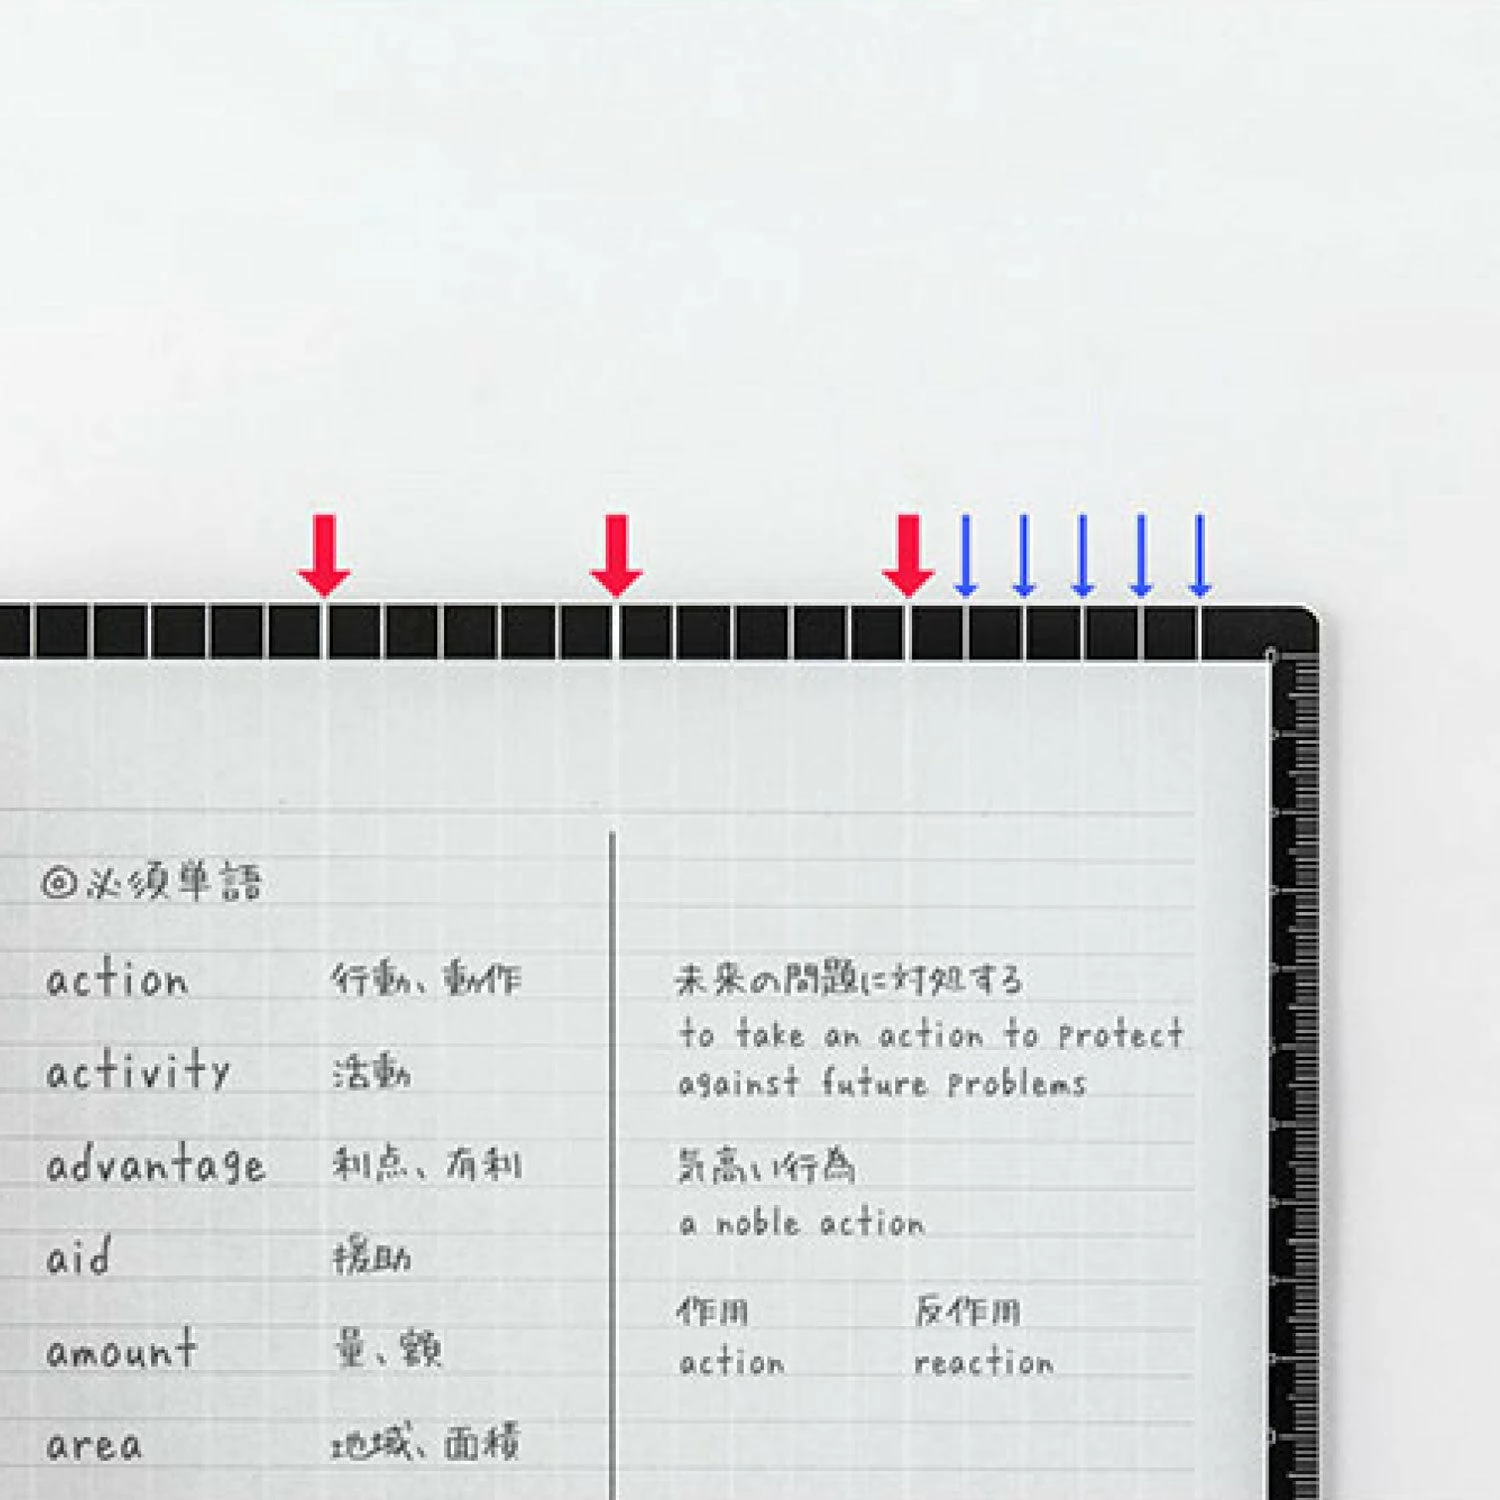 ◎必須単語
action 行動、動作
activity 活動
advantage 利点、有利
aid 援助
amount 量、額
area 地域、面積
未来の問題に対処する
to take an action to protect
against future problems
気高い行為
a noble action
作用 反作用
action reaction